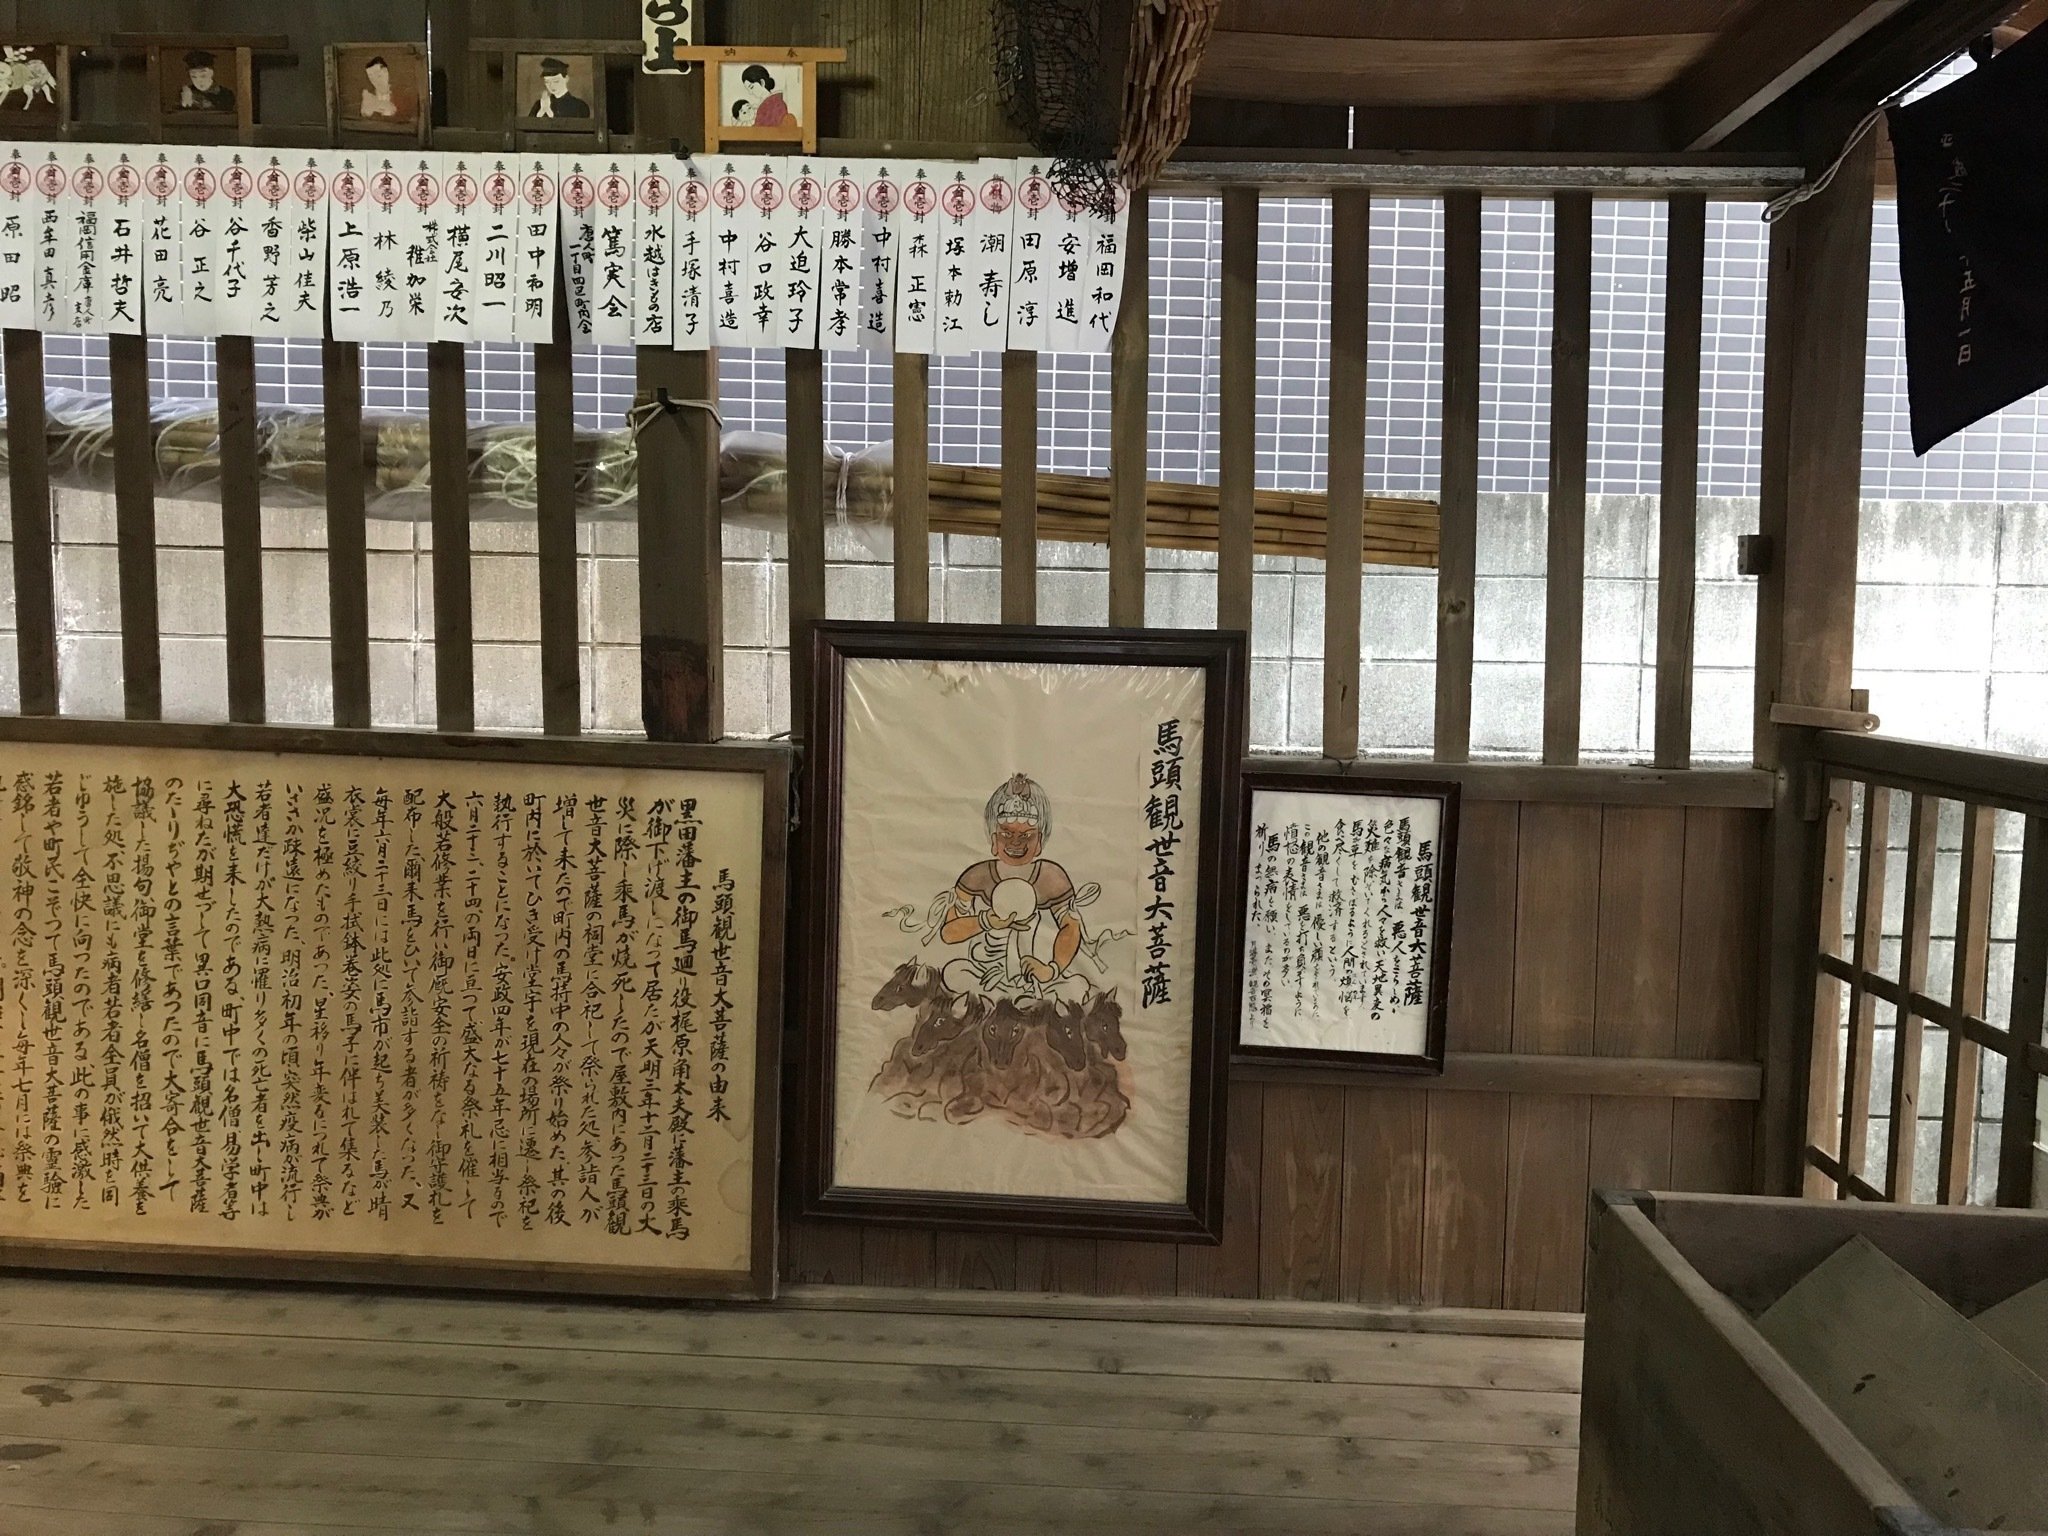 奉納
奉 金壱封 福岡和代
奉 金壱封 安増進
奉 金壱封 田原淳
潮寿し
奉 金壱封 塚本勅江
奉 金壱封 森正憲
奉 金壱封 中村喜造
奉 金壱封 勝本常孝
奉 金壱封 大迫玲子
奉 金壱封 谷口政幸
奉 金壱封 中村喜造
奉 金壱封 手塚清子
奉 金壱封 水越はきもの店
奉 金壱封 篤実会
奉 金壱封 唐人町一丁目四区町内会
奉 金壱封 田中和明
奉 金壱封 二川昭一
奉 金壱封 横尾安次
奉 金壱封 株式会社 稚加栄
奉 金壱封 林綾乃
奉 金壱封 上原浩一
奉 金壱封 柴山佳夫
奉 金壱封 香野芳之
奉 金壱封 谷千代子
奉 金壱封 谷正之
奉 金壱封 花田亮
奉 金壱封 石井哲夫
奉 金壱封 福岡信用金庫 唐人町支店
奉 金壱封 西牟田真彦
奉 金壱封 原田昭
五月一日
馬頭観世音大菩薩
馬頭観世音大菩薩
馬頭観音さまは、悪人をこらしめ、
色々な病気から人々を救い天地異変の
災難を除いてくれるとされています
馬が草をむさぼるように人間の煩悩を
食べ尽くして救済するという
他の観音さまは、優しい顔をされているが
この観音さまは、悪を打ち負かすように
憤怒の表情をしているのが多い
馬の無病を願い、また、その冥福を
祈りまつられた。
馬頭観世音大菩薩の由来
黒田藩主の御馬廻り役梶原角太夫殿に藩主の乗馬
が御下げ渡しになって居たが天明三年十二月二十三日の大
災に際し乗馬が焼死したので屋敷内にあった馬頭観
世音大菩薩の祠堂に合祀して祭られた処参詣人が
増して来たので町内の馬持中の人々が祭り始めた、其の後
町内に於いてひき受け堂宇を現在の場所に遷し祭祀を
執行することになった。安政四年が七十五年忌に相当るので
六月二十三、二十四の両日に亘って盛大なる祭礼を催して
大般若修業を行い御厩安全の祈祷をなし御守護札を
配布した爾来馬をひいて参詣する者が多くなった、又
毎年六月二十三日には此処に馬市が起ち美装した馬が晴
衣裳に豆絞り手拭鉢巻姿の馬子に伴はれて集るなど
盛況を極めたものであった、星移り年変るにつれて祭典が
いささか疎遠になった、明治初年の頃突然疫病が流行し
若者達だけが大熱病に罹り多くの死亡者を出し町中は
大恐慌を来したのである、町中では名僧、易学者等
に尋ねたが期せづして異口同音に馬頭観世音大菩薩
のたゝりぢやとの言葉であったので大寄合をして
協議した揚句御堂を修繕し名僧を招いて大供養を
施した処不思議にも病者若者全員が俄然時を同
じゆうして全快に向ったのである、此の事に感激した
若者や町民こぞって馬頭観世音大菩薩の霊験に
感銘して敬神の念を深くし毎年七月には祭典を